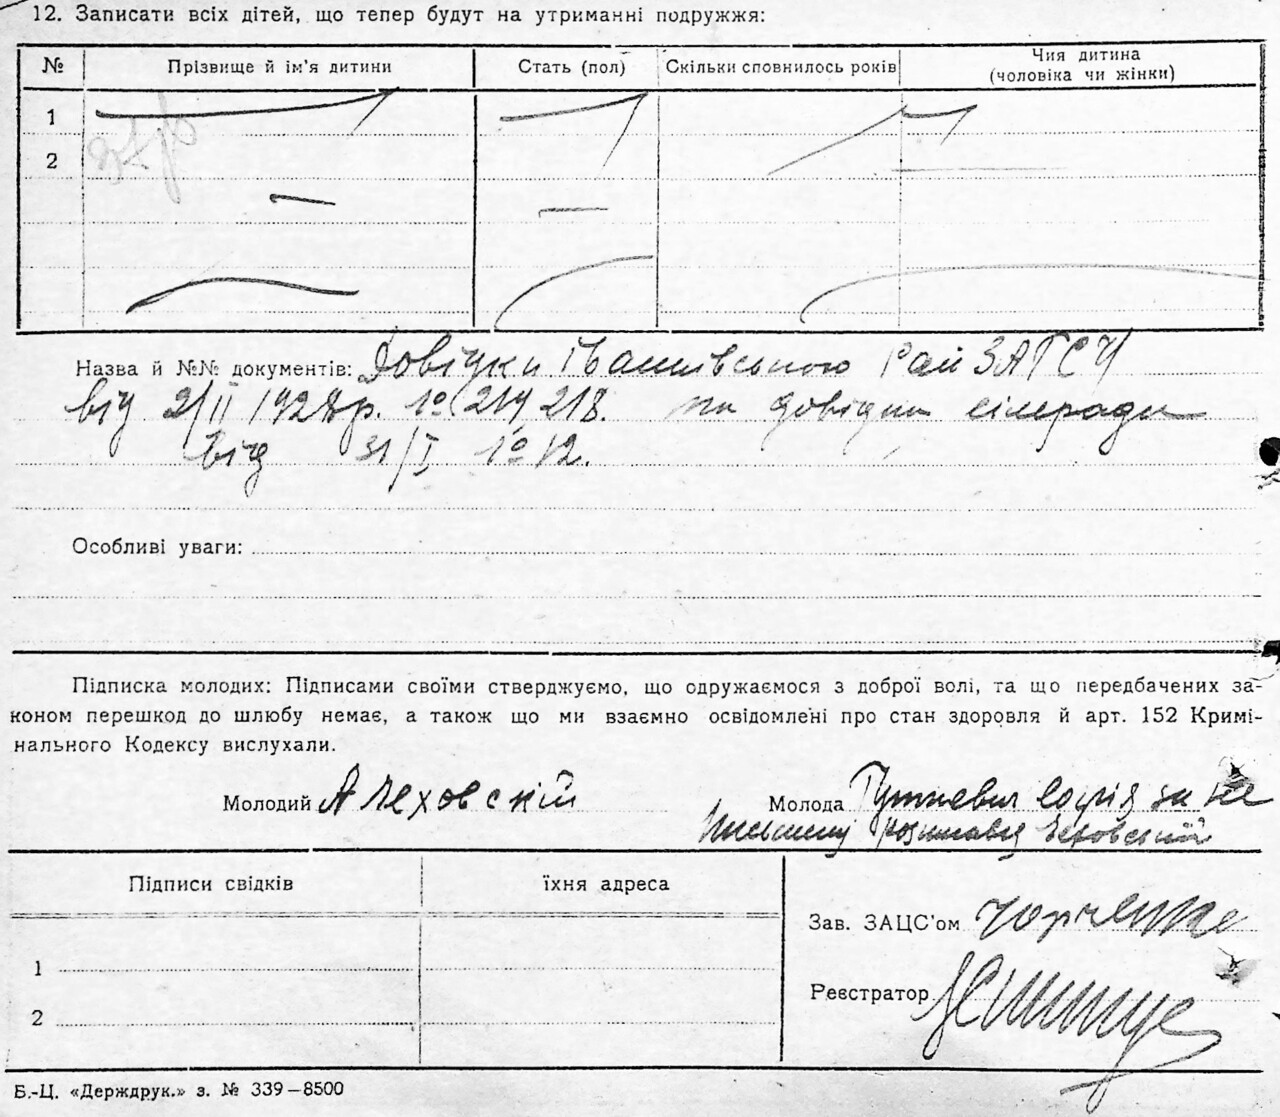 12. Записати всіх дітей, що тепер будут на утриманні подружжя:
№ Прізвище й ім'я дитини Стать (пол) Скільки сповнилось років Чия дитина (чоловіка чи жінки)
1
2
Назва й №№ документів: Довідки РайЗАГСУ
від 2/II 1928 р. № 217, 218. та довідки сілради
від 31/I № 12.
Особливі уваги:
Підписка молодих: Підписами своїми стверджуємо, що одружаємося з доброї волі, та що передбачених за-
коном перешкод до шлюбу немає, а також що ми взаємно освідомлені про стан здоровля й арт. 152 Кримі-
нального Кодексу вислухали.
Молодий А Чеховскій Молода Софія за не
письмену Чеховській
Підписи свідків їхня адреса
Зав. ЗАЦС'ом
1
Реєстратор
2
Б.-Ц. «Держдрук.» з. № 339—8500